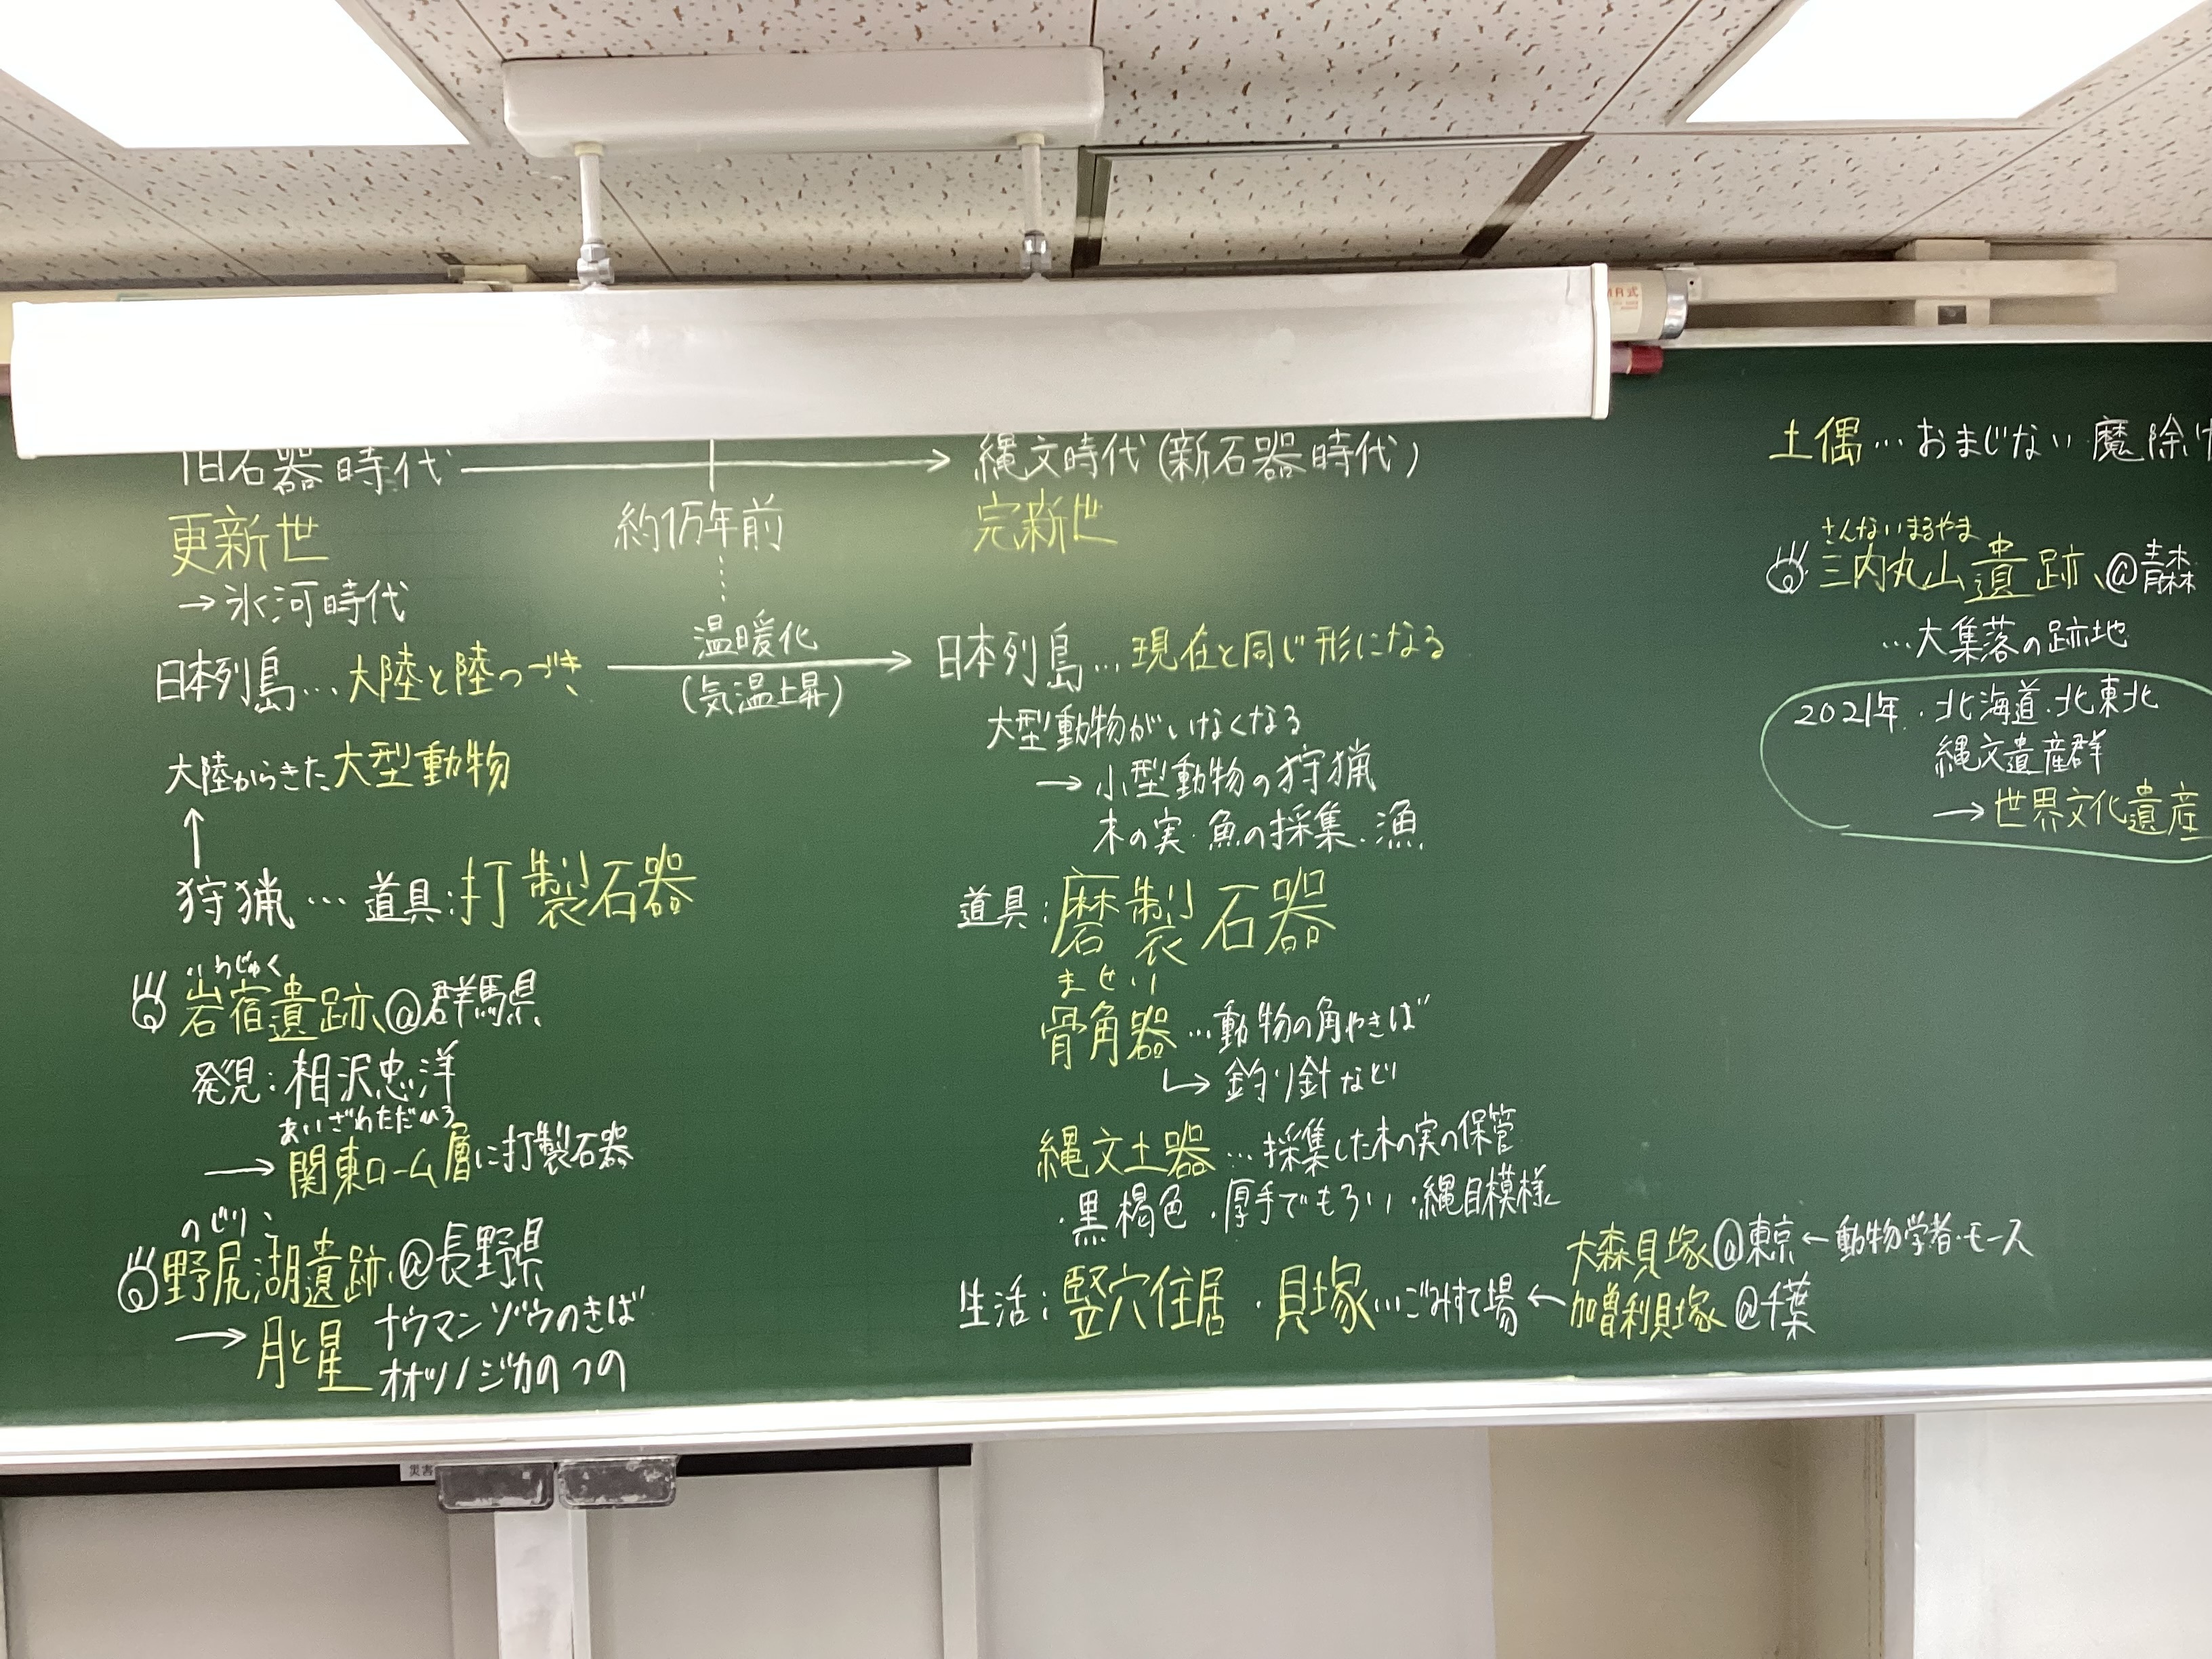 旧石器時代 → 縄文時代(新石器時代)
更新世
→氷河時代
約1万年前
完新世
日本列島…大陸と陸つづき
温暖化
(気温上昇)
日本列島…現在と同じ形になる
大陸からきた大型動物
↑
狩猟…道具:打製石器
いわじゅく
岩宿遺跡@群馬県
発見:相沢忠洋
あいざわただひろ
→関東ローム層に打製石器
のじりこ
野尻湖遺跡@長野県
→月と星
ナウマンゾウのきば
オオツノジカのつの
大型動物がいなくなる
→小型動物の狩猟
木の実・魚の採集・漁
道具:磨製石器
ませい
骨角器…動物の角やきば
↳釣り針など
縄文土器…採集した木の実の保管
・黒褐色・厚手でもろい・縄目模様
生活:竪穴住居・貝塚…ごみすて場←
大森貝塚@東京←動物学者・モース
加曽利貝塚@千葉
土偶…おまじない 魔除け
さんないまるやま
三内丸山遺跡@青森
…大集落の跡地
2021年・北海道・北東北
縄文遺産群
→世界文化遺産
MR式
災害